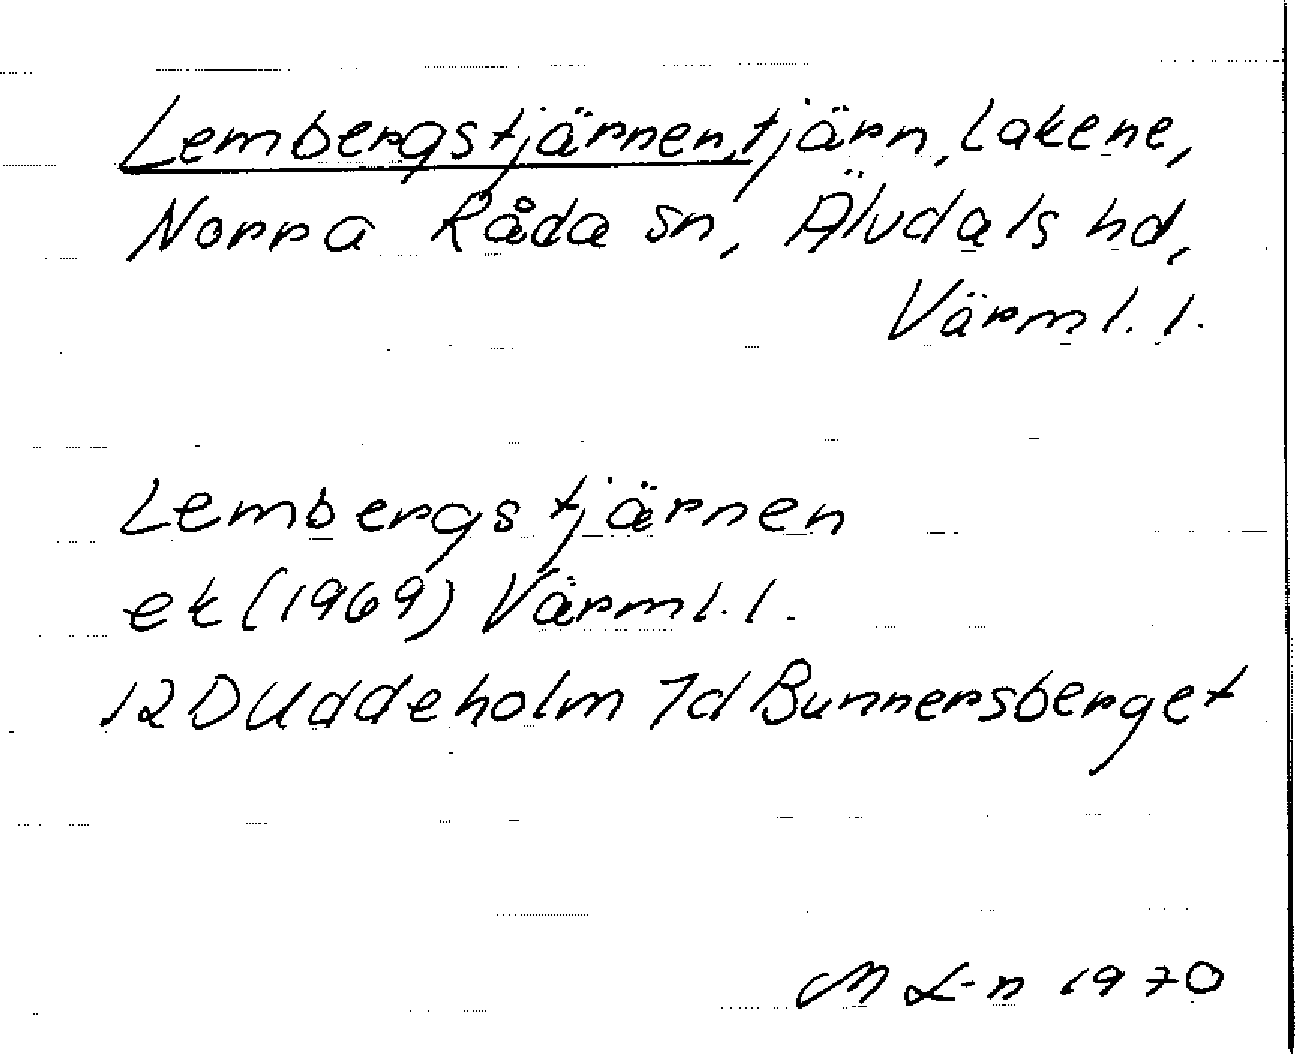 Lembergstjärnen, tjärn, Lakene,
Norra Råda sn, Älvdals hd,
Värml. l.
Lembergstjärnen
ek (1969) Värml. l.
12D Uddeholm 7d Bunnersberget
M L-n 1970